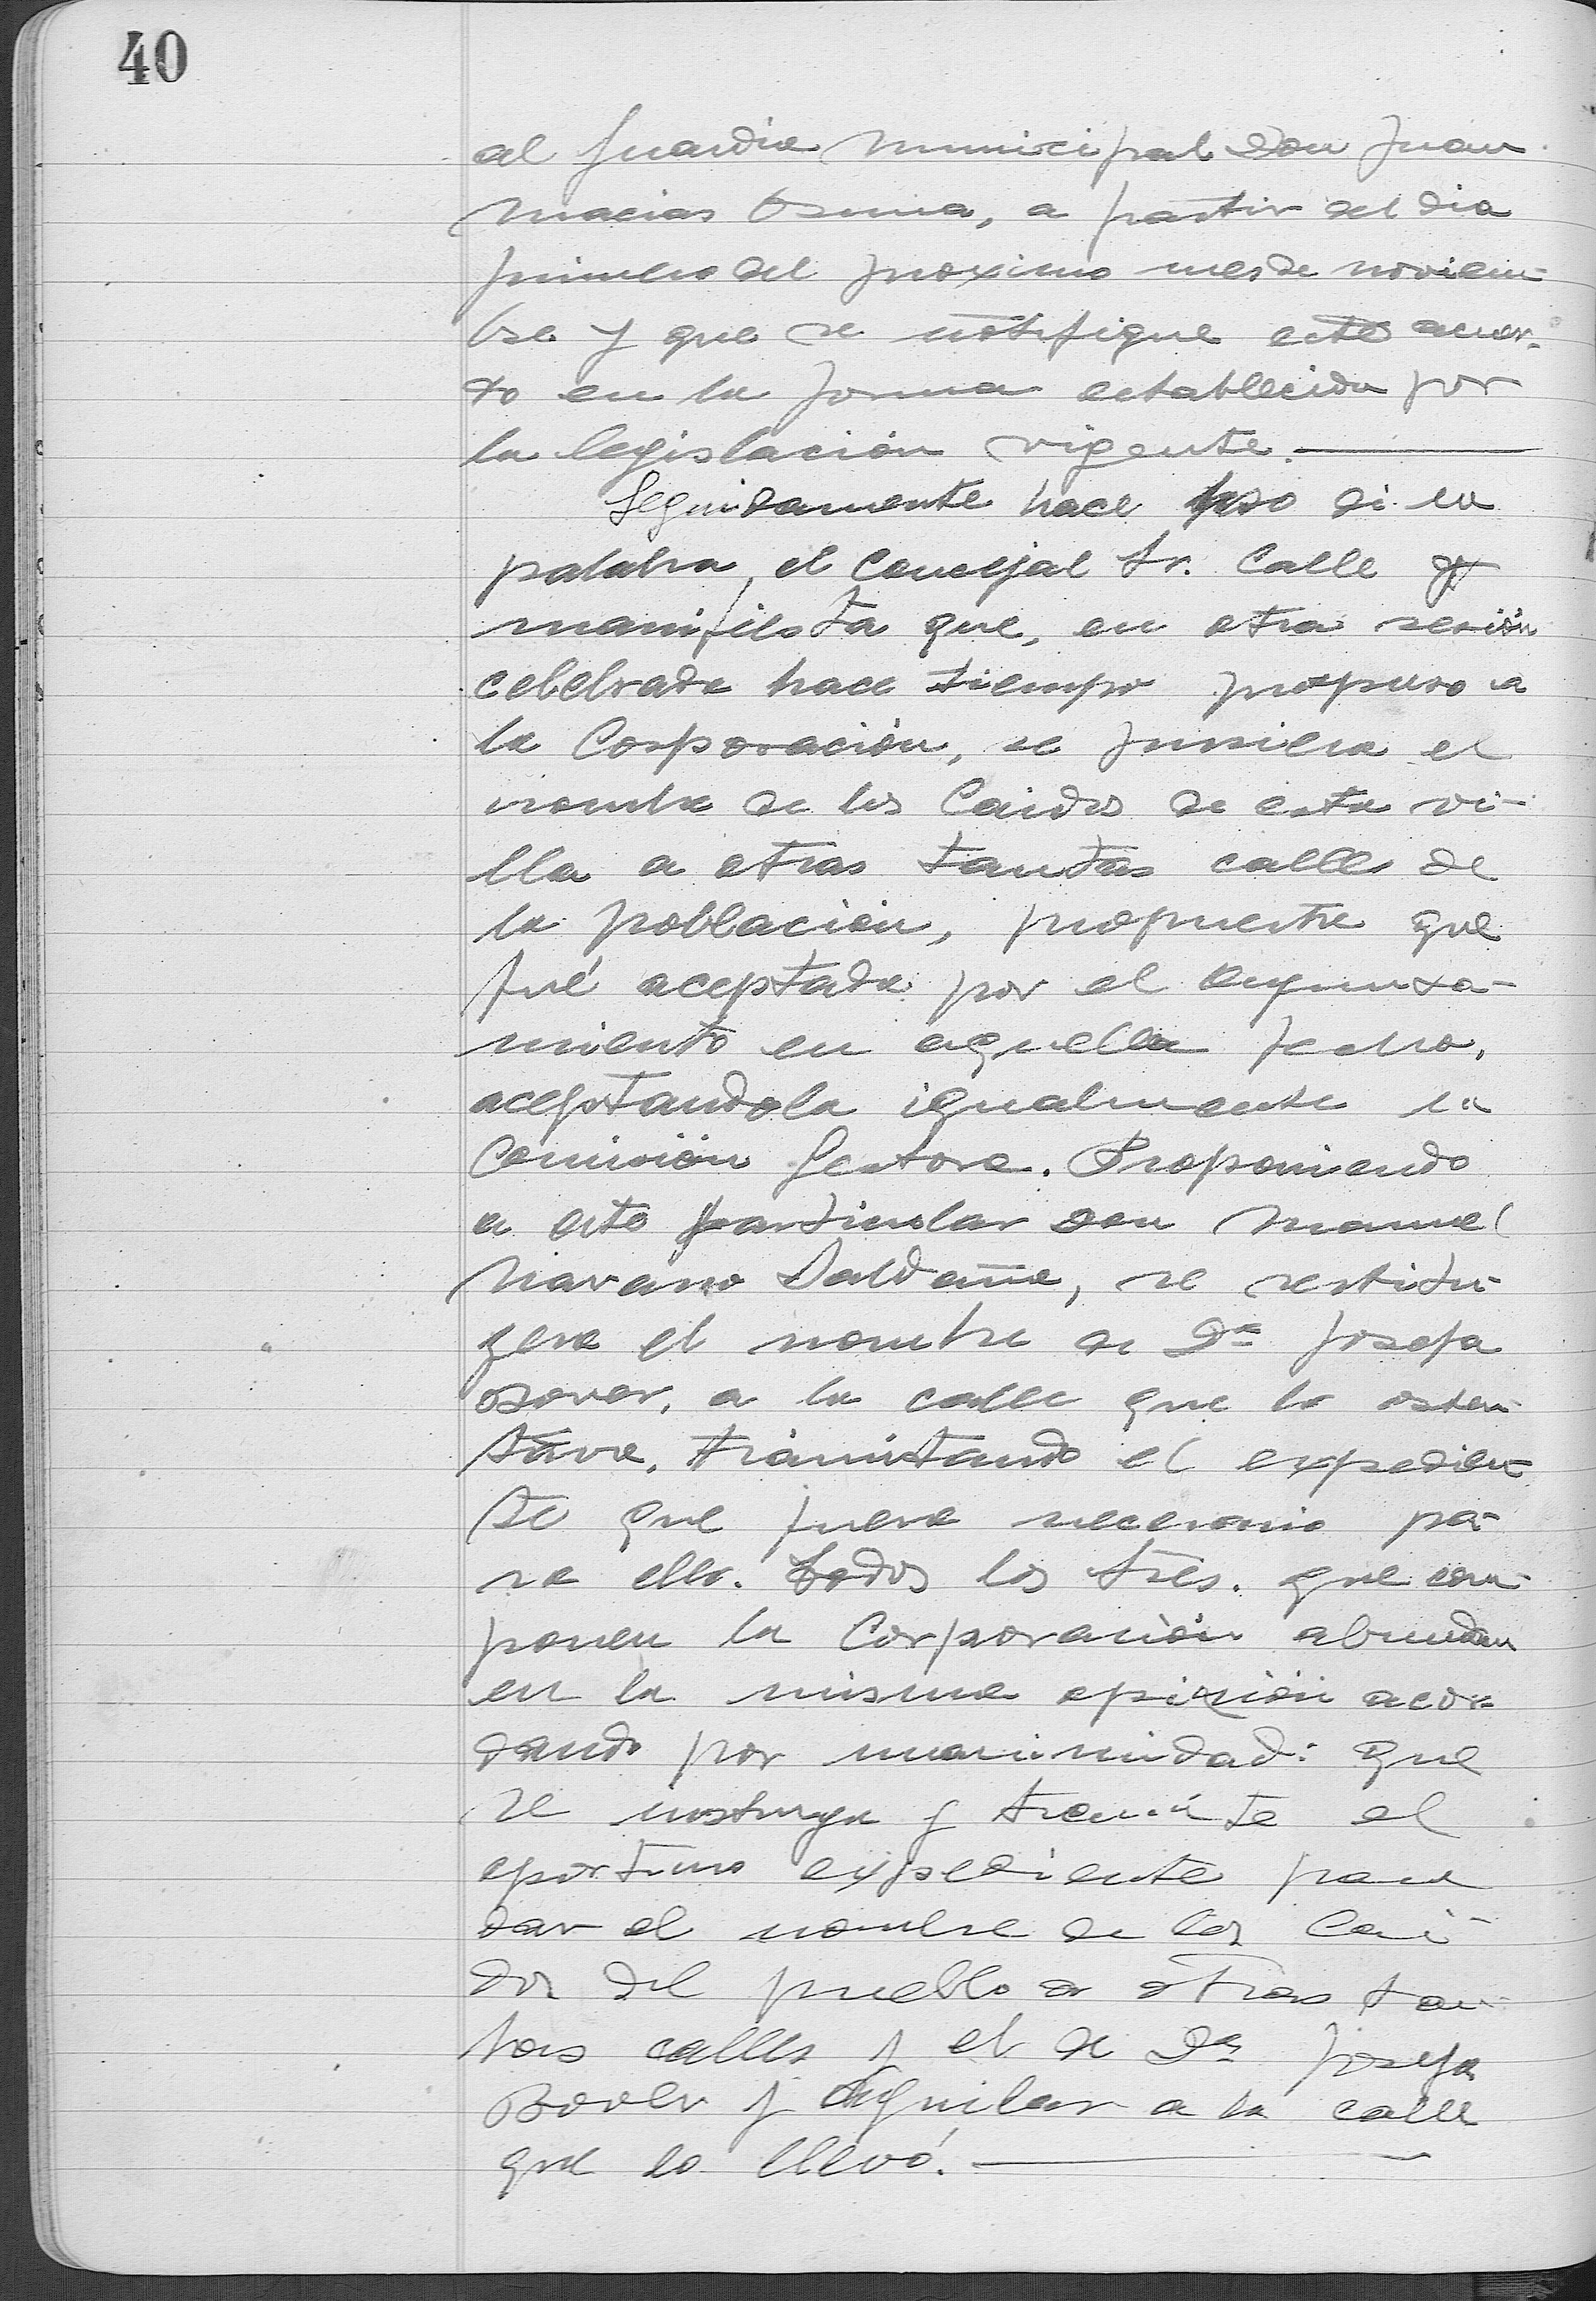 40
al Guardia Municipal Don Juan
Macias Osuna, a partir del dia
primero del proximo mes de noviem-
bre y que se notifique este acuer-
do en la forma establecida por
la legislación vigente.
Seguidamente hace uso de la
palabra, el Concejal Sr. Calle y
manifiesta que, en otra sesión
celebrada hace tiempo propuso a
la Corporación, se pusiera el
nombre de los Caidos de esta vi-
lla a otras tantas calles de
la población, propuesta que
fué aceptada por el Ayunta-
miento en aquella fecha,
aceptandola igualmente la
Comisión Gestora. Proponiendo
a este particular Don Manuel
Navarro Saldaña, se restitu-
yera el nombre de Dª Josefa
Bover, a la calle que lo osten-
tara, tramitando el expedien-
te que fuera necesario pa-
ra ello. Todos los Sres. que com-
ponen la Corporación abundan
en la misma opinión acor-
dando por unanimidad: que
se instruya y tramite el
oportuno expediente para
dar el nombre de los Cai-
dos del pueblo a otras tan-
tas calles y el de Dª Josefa
Bover y Aguilar a la calle
que lo llevó.